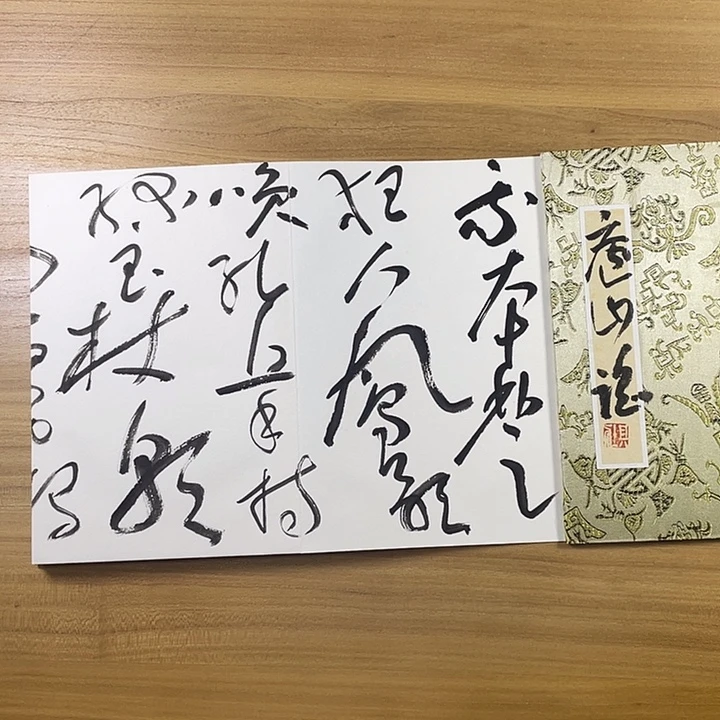 廬山謠
我本楚
狂人鳳歌
笑孔丘手持
綠玉杖朝